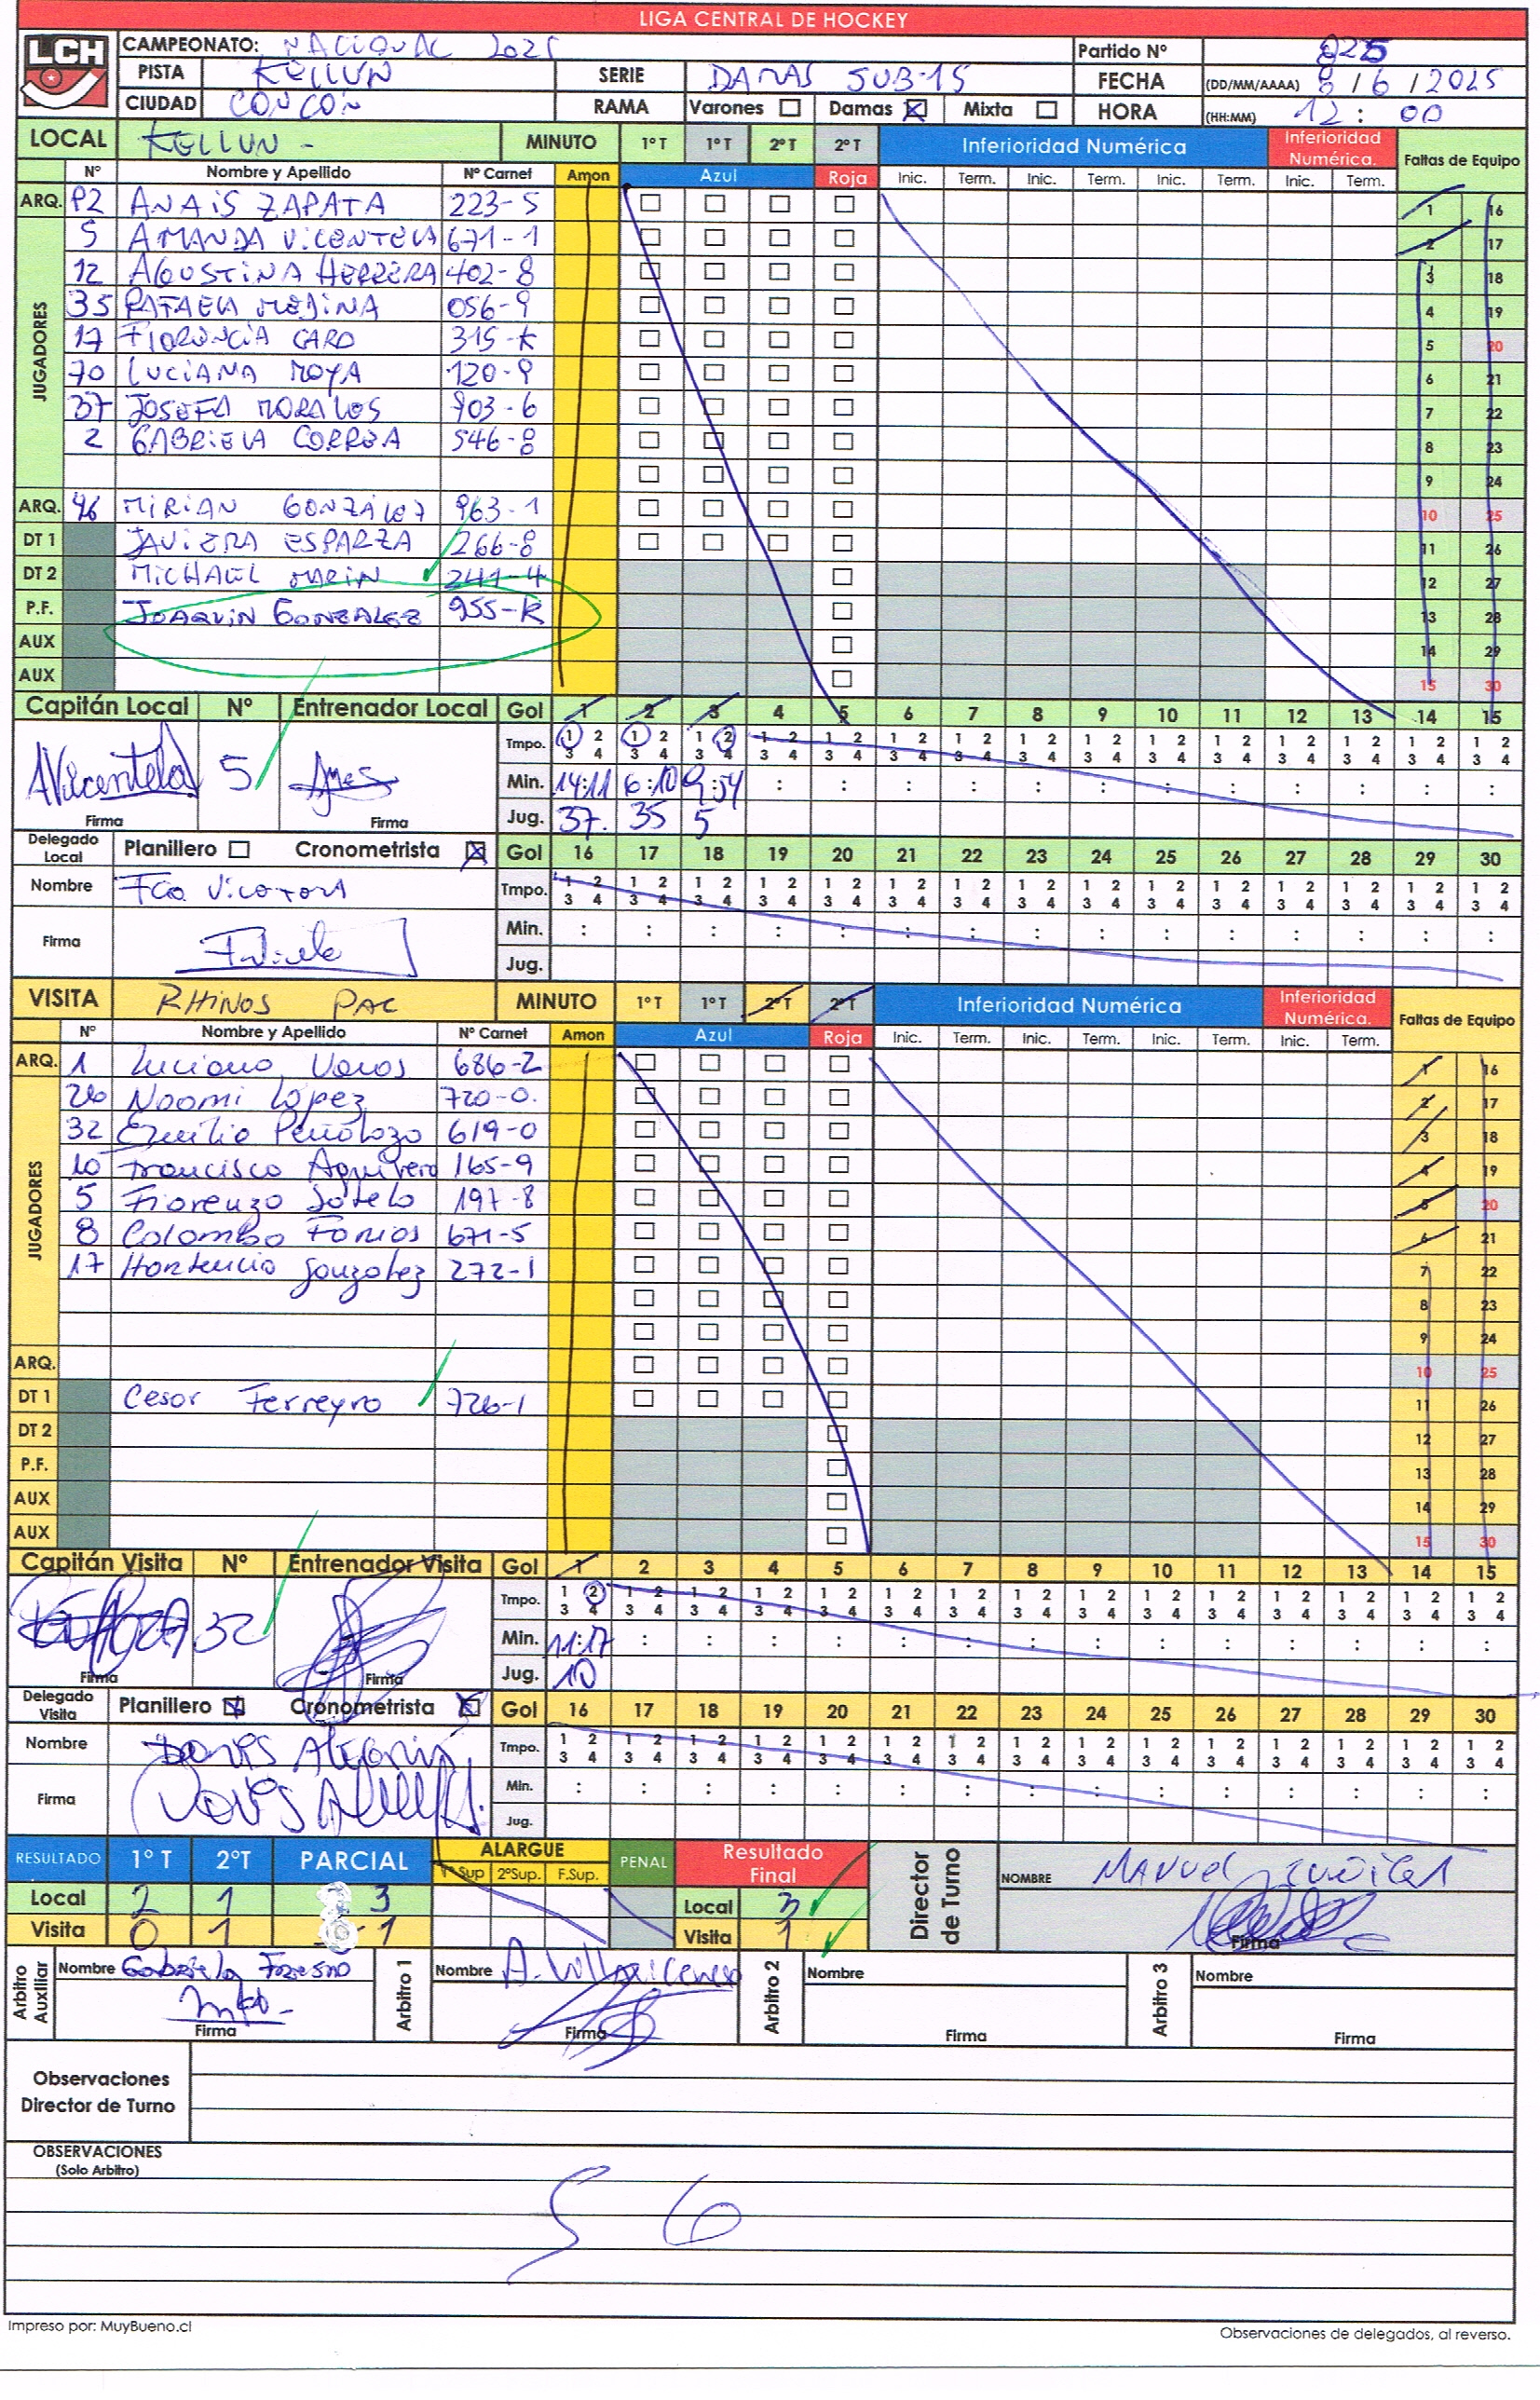 LIGA CENTRAL DE HOCKEY
LCH
CAMPEONATO: NACIONAL 2025 Partido Nº 225
PISTA KELLUN SERIE DAMAS SUB-15 FECHA (DD/MM/AAAA) 8/6/2025
CIUDAD CONCON RAMA Varones ☐ Damas ☒ Mixta ☐ HORA (HH:MM) 12:00
LOCAL KELLUN - MINUTO 1º T 1º T 2º T 2º T Inferioridad Numérica Inferioridad Numérica. Faltas de Equipo
Nº Nombre y Apellido Nº Carnet Amon Azul Roja Inic. Term. Inic. Term. Inic. Term. Inic. Term.
ARQ. P2 ANAIS ZAPATA 223-5 1 16
JUGADORES
5 AMANDA VICENTELA 671-1 2 17
12 AGUSTINA HERRERA 402-8 3 18
35 RAFAELA MEDINA 056-9 4 19
17 FLORENCIA CARO 315-K 5 20
70 LUCIANA MOYA 120-9 6 21
37 JOSEFA MORALES 903-6 7 22
2 GABRIELA CORREA 546-8 8 23
9 24
ARQ. 46 MIRIAN GONZALEZ 963-1 10 25
DT 1 JAVIERA ESPARZA 266-8 11 26
DT 2 MICHAEL MARIN 241-4 12 27
P.F. JOAQUIN GONZALEZ 955-K 13 28
AUX 14 29
AUX 15 30
Capitán Local Nº Entrenador Local Gol 1 2 3 4 5 6 7 8 9 10 11 12 13 14 15
AVicentela 5 Tmpo. 1 2 3 4
Min. 14:11 6:10 9:54
Firma Firma Jug. 37. 35 5
Delegado Local Planillero ☐ Cronometrista ☒ Gol 16 17 18 19 20 21 22 23 24 25 26 27 28 29 30
Nombre Fco Tmpo. 1 2 3 4
Firma Min.
Jug.
VISITA RHINOS PAC MINUTO 1º T 1º T 2º T 2º T Inferioridad Numérica Inferioridad Numérica. Faltas de Equipo
Nº Nombre y Apellido Nº Carnet Amon Azul Roja Inic. Term. Inic. Term. Inic. Term. Inic. Term.
ARQ. 1 Luciana Varas 686-2 1 16
JUGADORES
26 Noomi López 720-0. 2 17
32 Emilia Peñaloza 619-0 3 18
10 Francisca Aguilera 165-9 4 19
5 Fiorenza Sotelo 197-8 5 20
8 Colomba Farias 671-5 6 21
17 Hortencia Gonzalez 272-1 7 22
8 23
9 24
ARQ. 10 25
DT 1 Cesar Ferreyra 726-1 11 26
DT 2 12 27
P.F. 13 28
AUX 14 29
AUX 15 30
Capitán Visita Nº Entrenador Visita Gol 1 2 3 4 5 6 7 8 9 10 11 12 13 14 15
32 Tmpo. 1 2 3 4
Min. 11:17
Firma Firma Jug. 10
Delegado Visita Planillero ☒ Cronometrista ☒ Gol 16 17 18 19 20 21 22 23 24 25 26 27 28 29 30
Nombre Tmpo. 1 2 3 4
Firma Min.
Jug.
RESULTADO 1º T 2ºT PARCIAL ALARGUE 1º Sup 2ºSup. F.Sup. PENAL Resultado Final Director de Turno NOMBRE MANUEL
Local 2 1 3 Local 3
Visita 0 1 1 Visita 1 Firma
Arbitro Auxiliar Nombre Gabriela Arbitro 1 Nombre A. Villavicencio Arbitro 2 Nombre Arbitro 3 Nombre
Firma Firma Firma Firma
Observaciones
Director de Turno
OBSERVACIONES
(Solo Arbitro)
Impreso por: MuyBueno.cl Observaciones de delegados, al reverso.